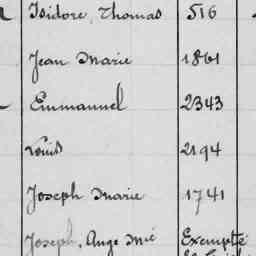 Isidore, Thomas 516
Jean Marie 1861
Emmanuel 2343
Louis 2194
Joseph Marie 1741
Joseph, Ange Mie Exempté